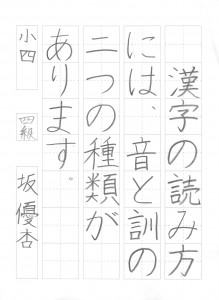 漢字の読み方
には、音と訓の
二つの種類が
あります。
小四 四級 坂優杏